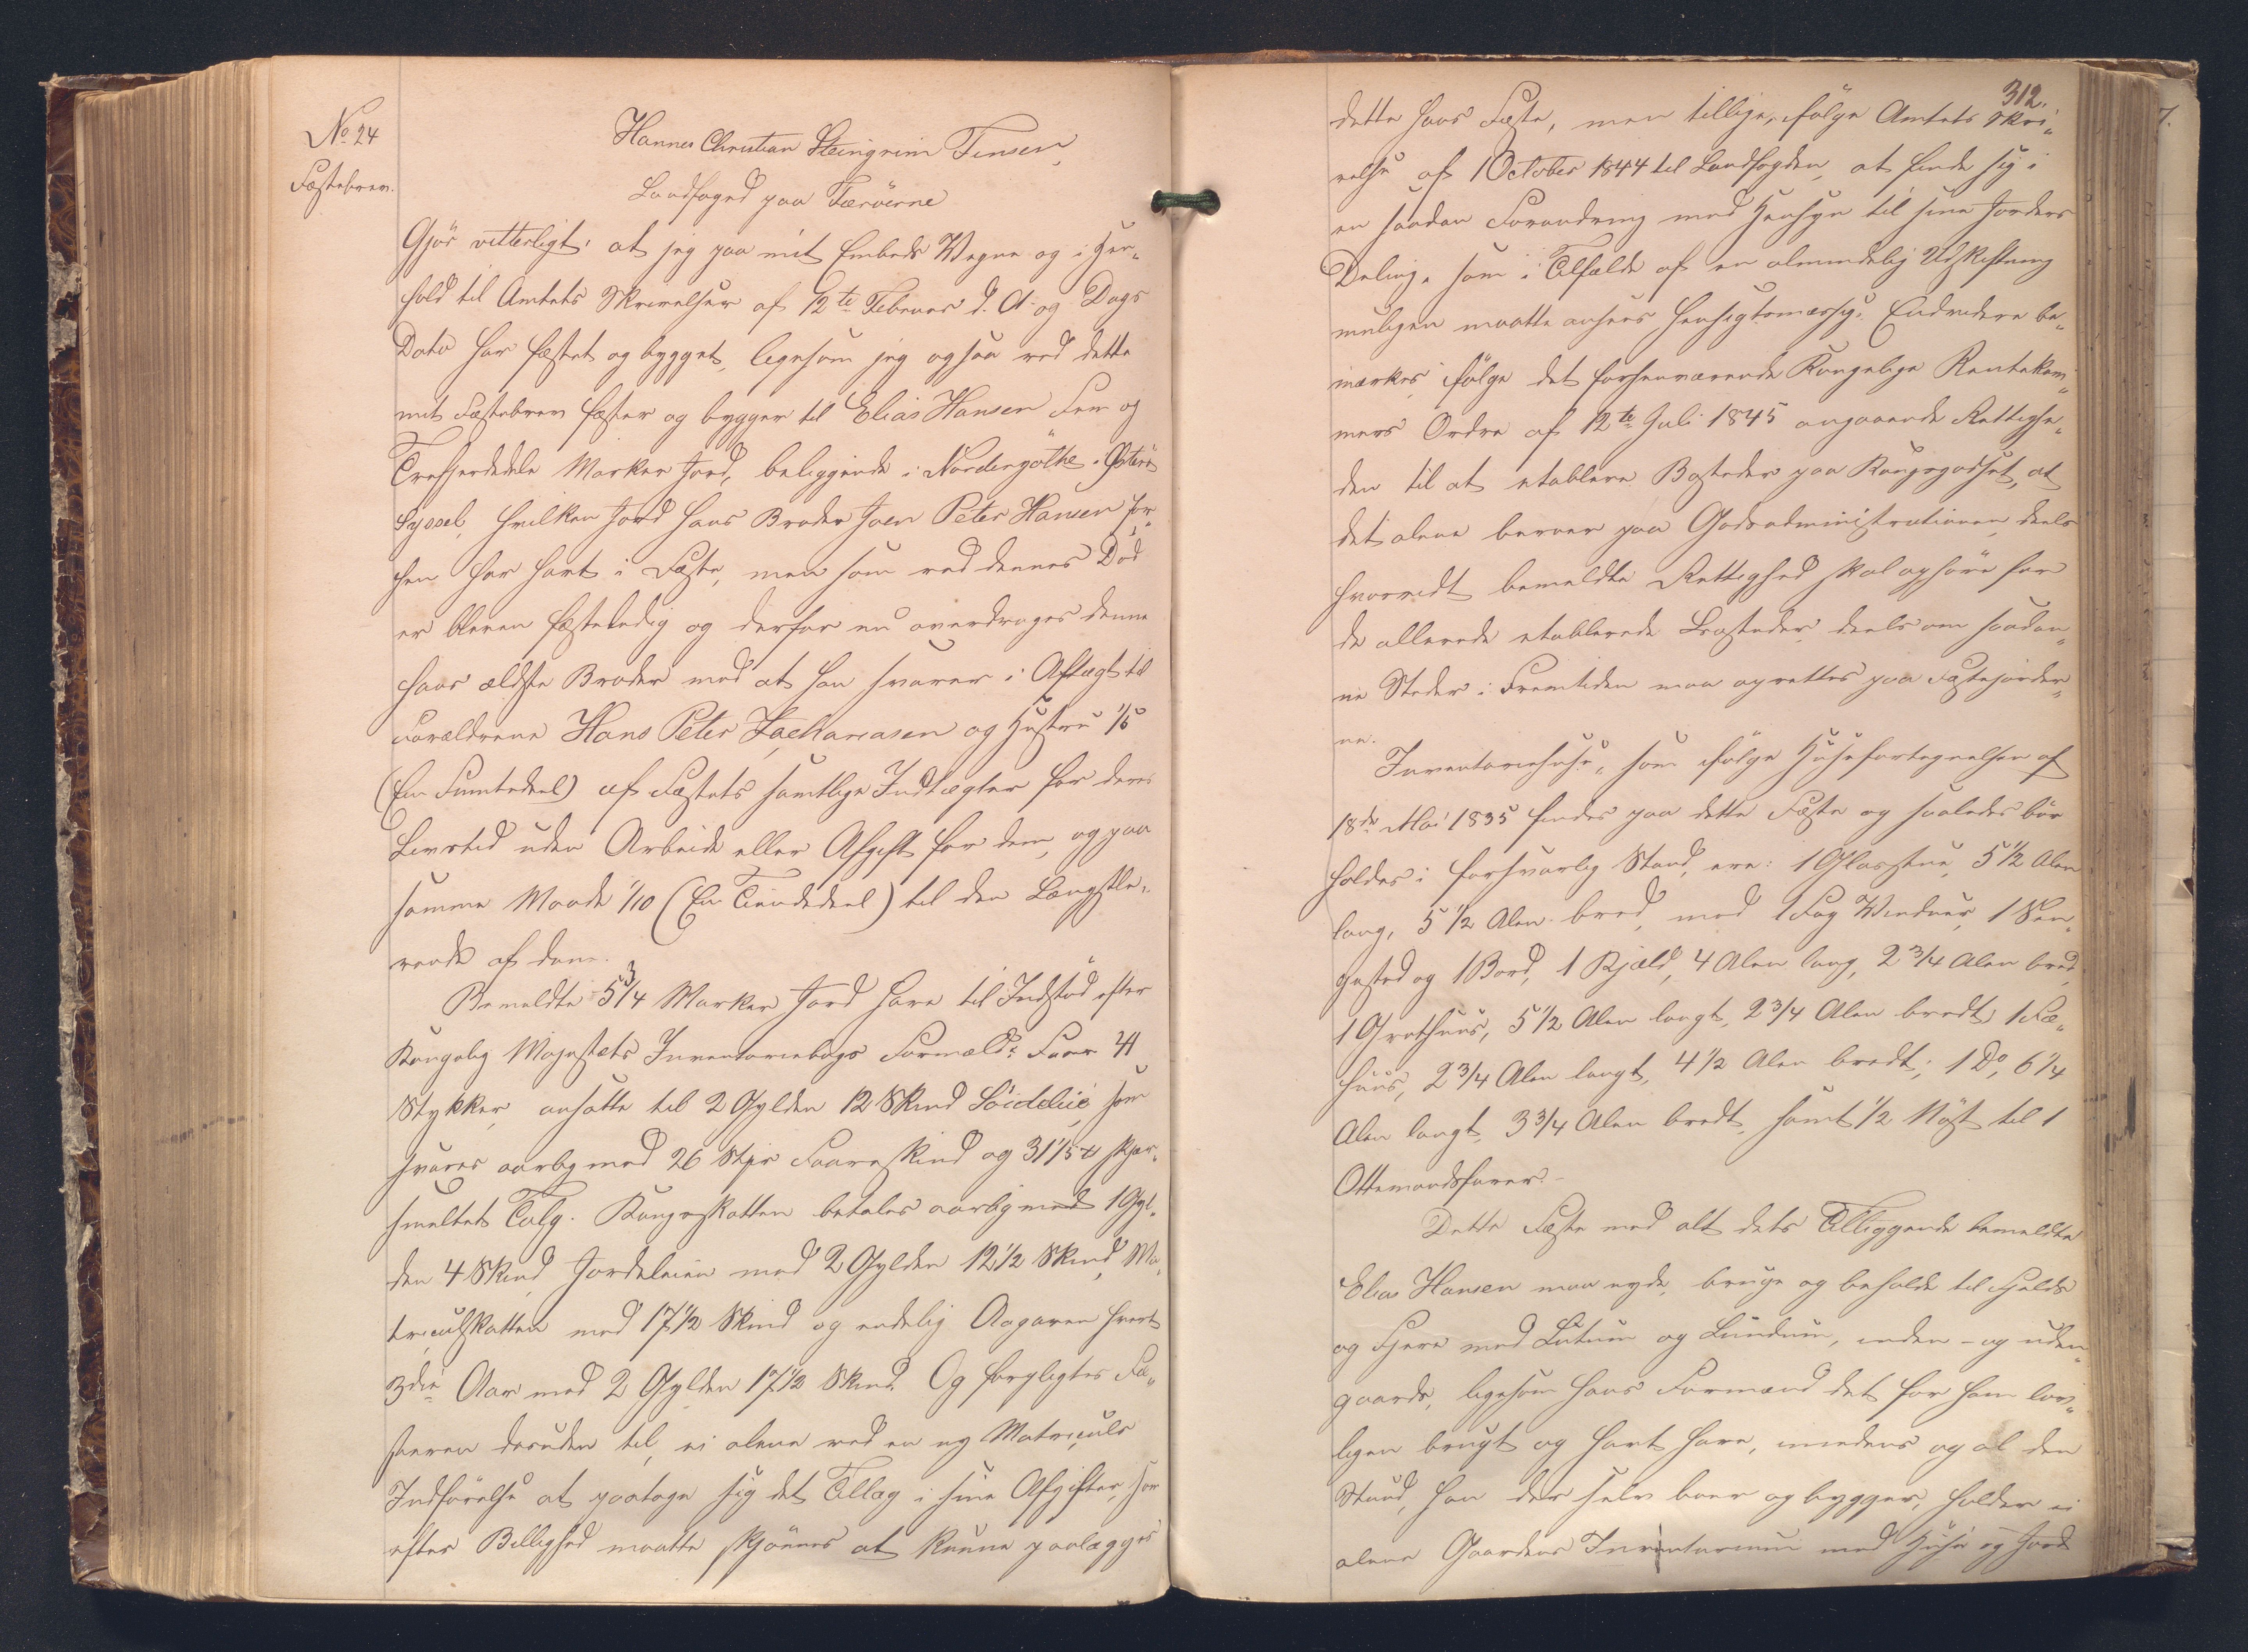 No 24
Fæstebrev.
Hannes Christian Steingrim Finsen,
Landfoged paa Færöerne
Gjör vitterligt: at jeg paa mit Embeds Vegne og i Hen-
hold til Amtets Skrivelser af 12te Februar d. A. og Dags
Dato har fæstet og bygget, ligesom jeg ogsaa ved dette
mit Fæstebrev fæster og bygger til Elias Hansen Fem og
Trefjerdedele Marker Jord, beliggende i Nordregöthe, Österö
Syssel, hvilken Jord hans Broder Joen Peter Hansen for-
hen har havt i Fæste, men som ved dennes Död
er bleven fæsteledig og derfor nu overdrages denne
hans ældste Broder mod at han svarer i Aftægt til
Forældrene Hans Peter Zachariasen og Hustru 1/5
(En Femtedeel) af Fæstets samtlige Indtægter for deres
Levetid uden Arbeide eller Afgift for dem, og paa
samme Maade 1/10 (En Tiendedeel) til den Længstle-
vende af dem.
Bemeldte 5 3/4 Marker Jord have til Indstöd efter
Kongelig Majestæts Inventariebogs Formeld: Faar 41
Stykker, ansatte til 2 Gylden 12 Skind Söideleie, som
svares aarlig med 26 Stpr Faareskind og 31 1/5 ℔ skjær-
smeltet Talg. Kongsskatten betales aarlig med 1 Gyl-
den 4 Skind Jordeleien med 2 Gylden 12 1/2 Skind, Ma-
triculskatten med 17 1/2 Skind og endelig Aagaven hvert
3die Aar med 2 Gylden 17 1/2 Skind. Og forpligtes Fæ-
steren desuden til, ei alene ved en ny Matriculs
Indförelse at paatage sig det Tillæg i sine Afgifter, som
efter Billighed maatte skjönnes at kunne paalægges
312.
dette hans Fæste, men tillige, ifölge Amtets Skri-
velse af 1 October 1844 til Landfogden, at finde sig i
en saadan Forandring med Hensyn til sine Jorders
Deling, som i Tilfælde af en almindelig Udskiftning
muligen maatte ansees hensigtsmæssig. Endvidere be-
mærkes, ifölge det forhenværende Kongelige Rentekam-
mers Ordre af 12te Juli 1845 angaaende Rettighe-
den til at etablere Bosteder paa Kongsgodset, at
det alene beroer paa Godsadministrationen, deels
hvorvidt bemeldte Rettighed skal ophöre for
de allerede etablerede Bosteder, deels om saadan-
ne Steder i Fremtiden maa oprettes paa Fæstejorder-
ne.
Inventariehuse, som ifölge Husefortegnelsen af
18de Mai 1835 findes paa dette Fæste og saaledes bör
holdes i forsvarlig Stand, ere: 1 Glasstue, 5 1/2 Alen
lang, 5 1/2 Alen bred, med 1 Fag Vinduer, 1 Sen-
gested og 1 Bord, 1 Kjæld, 4 Alen lang, 2 3/4 Alen bred,
1 Grothuus, 5 1/2 Alen langt, 2 3/4 Alen bredt, 1 Fæ-
huus, 2 3/4 Alen langt, 4 1/2 Alen bredt; 1 Do, 6 1/4
Alen langt, 3 3/4 Alen bredt, samt 1/2 Nöst til 1
Ottemandsfarer.
Dette Fæste med alt dets Tilliggende bemeldte
Elias Hansen maa nyde, bruge og beholde til Fjelds
og Fjere med Lutum og Lundum, inden- og uden-
gaards, ligesom hans Formænd det för ham lov-
ligen brugt og havt have, imedens og al den
Stund, han der selv boer og bygger, holder ei
alene Gaardens Inventarium med Huse og Jord